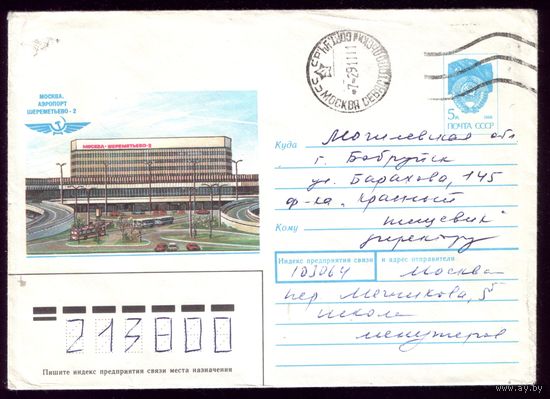 МОСКВА.
АЭРОПОРТ
ШЕРЕМЕТЬЕВО - 2
МОСКВА - ШЕРЕМЕТЬЕВО-2
СССР
МОСКВА
5к
1988
ПОЧТА СССР
Куда Могилевская обл
г. Бобруйск
ул. Бахарова, 145
ф-ка "Красный
пищевик"
Кому
директору
Индекс предприятия связи и адрес отправителя
103064 Москва
пер Мечникова, 5
школа
менеджеров
213800
Пишите индекс предприятия связи места назначения
www.ay.by